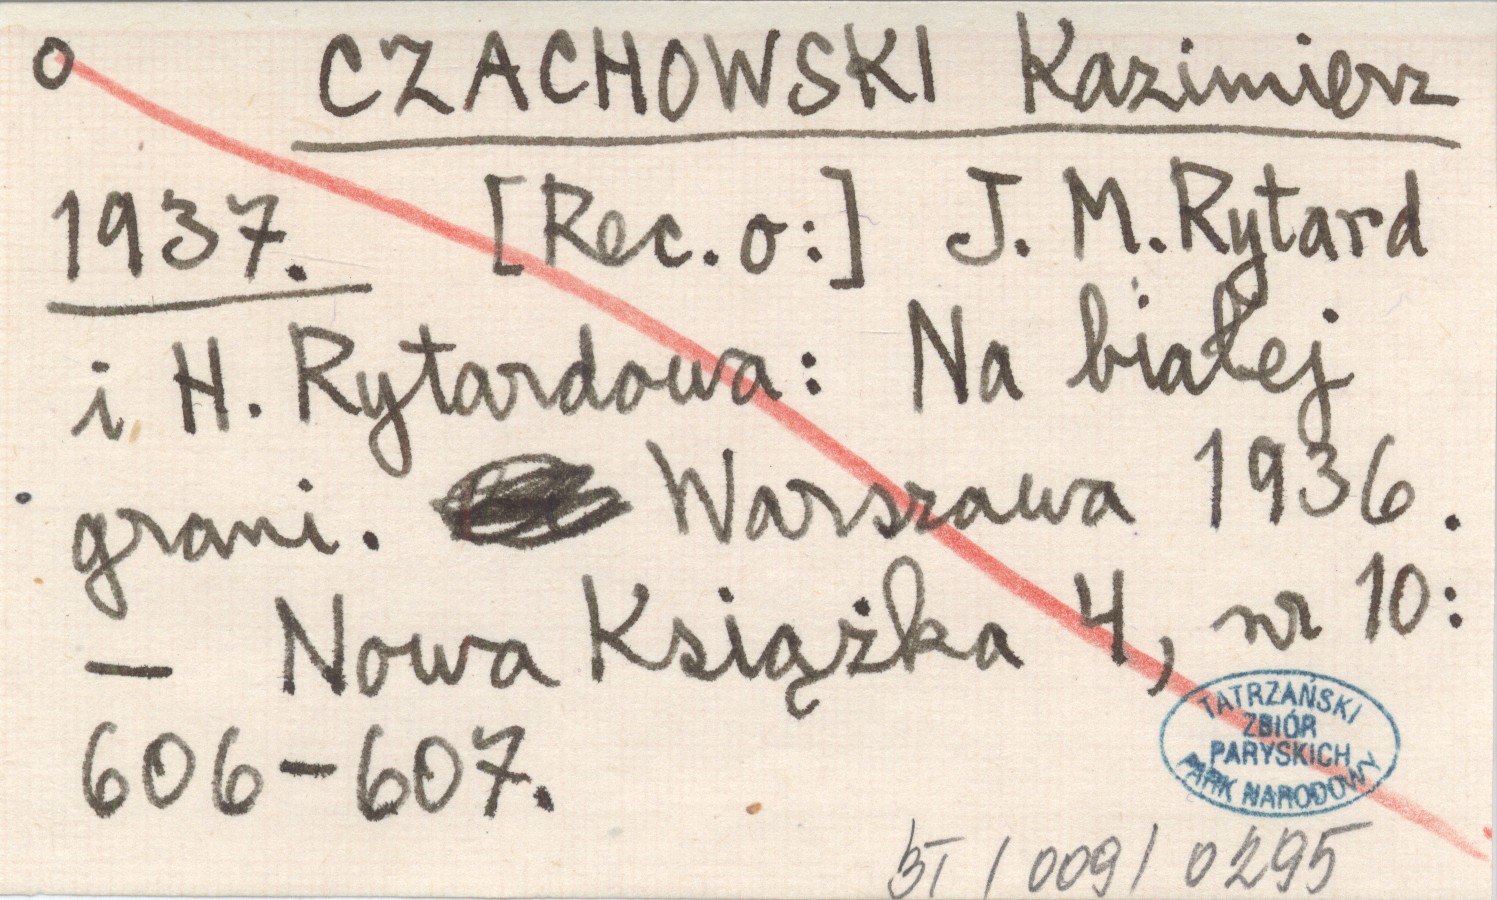 o CZACHOWSKI Kazimierz
1937. [Rec. o:] J. M. Rytard
i H. Rytardowa: Na białej
grani. Warszawa 1936.
— Nowa Książka 4, nr 10:
606-607.
TATRZAŃSKI
ZBIÓR
PARYSKICH
PARK NARODOWY
/ 009 / 0295